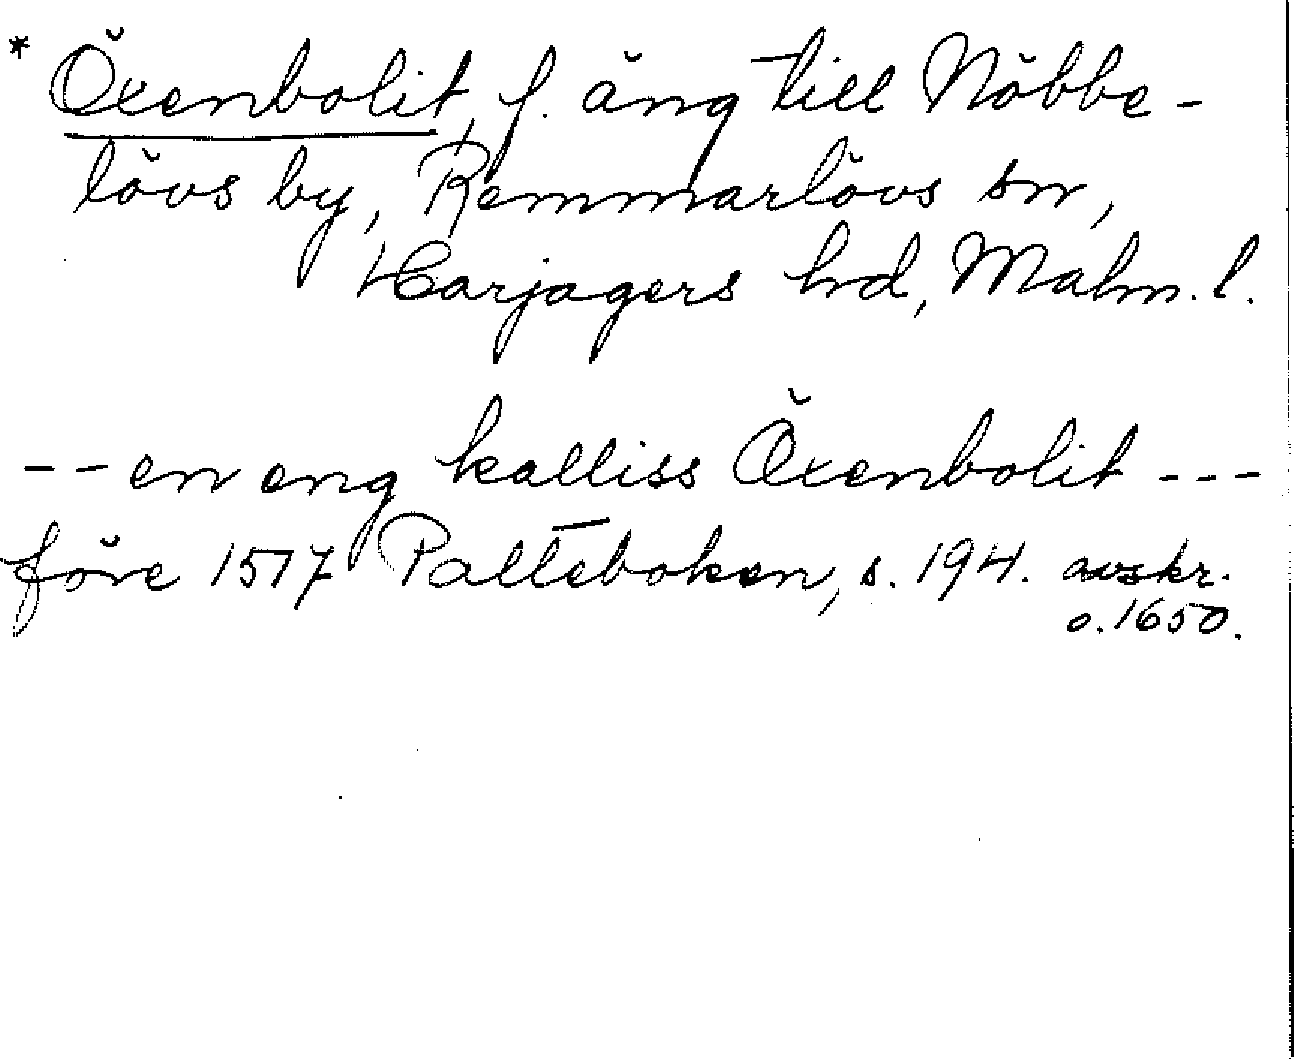 * Öxenbolit, f. äng till Nöbbe-
lövs by, Remmarlövs sn,
Harjagers hd, Malm. l.
-- en eng kalliss Öxenbolit ---
före 1517 Palteboken, s. 194. avskr.
o. 1650.